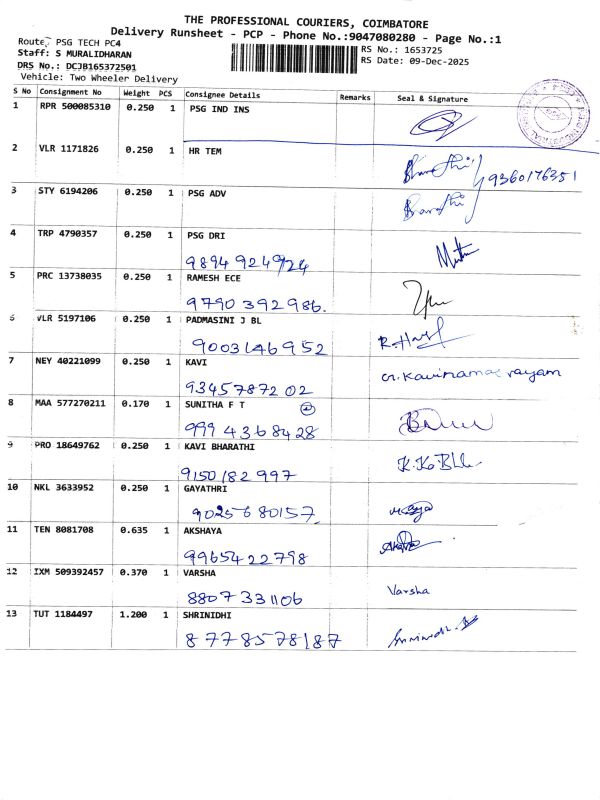 THE PROFESSIONAL COURIERS, COIMBATORE
Delivery Runsheet - PCP - Phone No.:9047080280 - Page No.:1
Route: PSG TECH PC4
Staff: S MURALIDHARAN
DRS No.: DCJB165372501
Vehicle: Two Wheeler Delivery
RS No.: 1653725
RS Date: 09-Dec-2025
S No Consignment No Weight PCS Consignee Details Remarks Seal & Signature
1 RPR 500085310 0.250 1 PSG IND INS
2 VLR 1171826 0.250 1 HR TEM Bharathi 9360176351
3 STY 6194206 0.250 1 PSG ADV Bharathi
4 TRP 4790357 0.250 1 PSG DRI
9894924924
5 PRC 13738035 0.250 1 RAMESH ECE
9790392986.
6 VLR 5197106 0.250 1 PADMASINI J BL
9003146952
7 NEY 40221099 0.250 1 KAVI
9345787202
8 MAA 577270211 0.170 1 SUNITHA F T
9994368428
9 PRO 18649762 0.250 1 KAVI BHARATHI
9150182997
10 NKL 3633952 0.250 1 GAYATHRI
9025680157
11 TEN 8081708 0.635 1 AKSHAYA
9965422798
12 IXM 509392457 0.370 1 VARSHA Varsha
8807331106
13 TUT 1184497 1.200 1 SHRINIDHI
8778578187